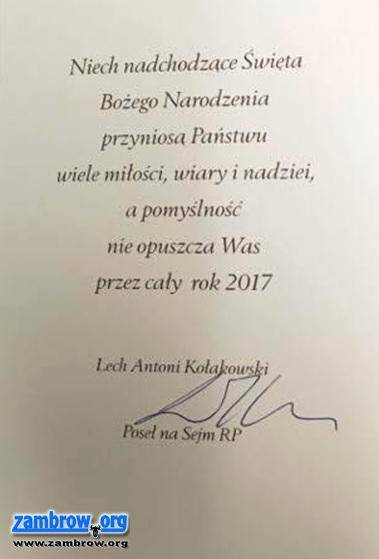 Niech nadchodzące Święta
Bożego Narodzenia
przyniosą Państwu
wiele miłości, wiary i nadziei,
a pomyślność
nie opuszcza Was
przez cały rok 2017
Lech Antoni Kołakowski
Poseł na Sejm RP
zambrow.org
www.zambrow.org